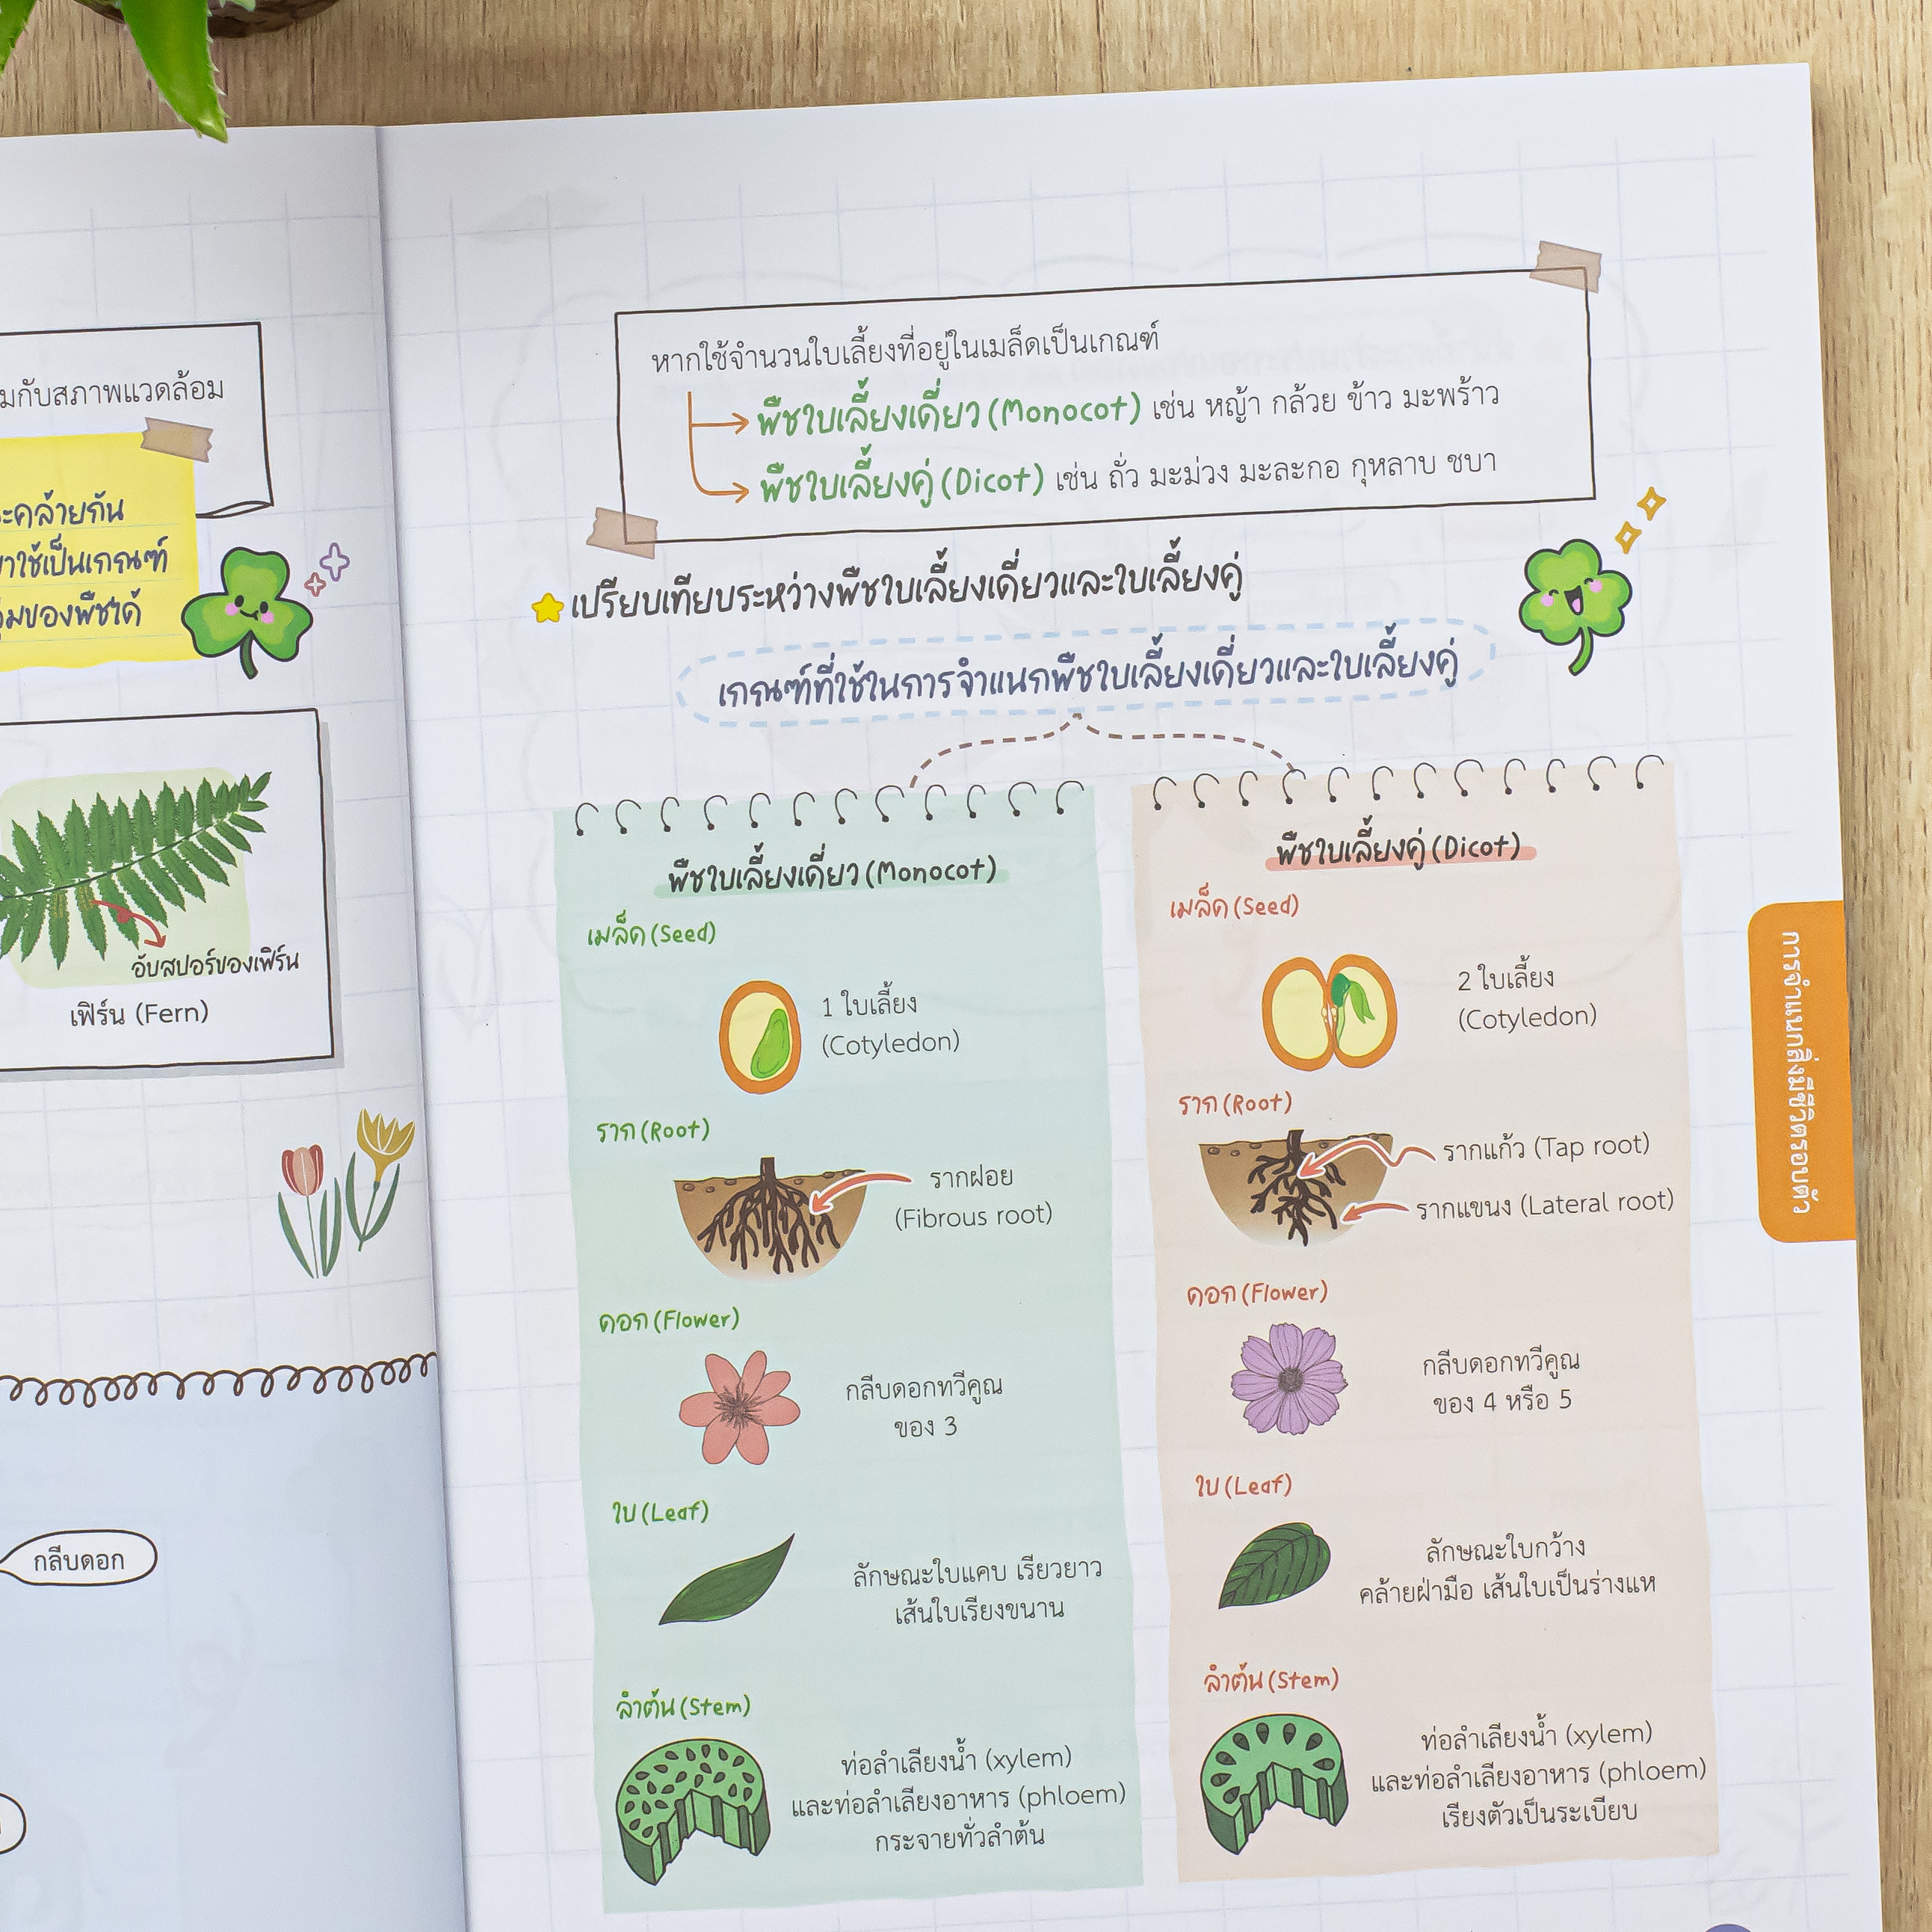 มกับสภาพแวดล้อม
ะคล้ายกัน
าใช้เป็นเกณฑ์
ุ่มของพืชได้
อับสปอร์ของเฟิร์น
เฟิร์น (Fern)
กลีบดอก
หากใช้จำนวนใบเลี้ยงที่อยู่ในเมล็ดเป็นเกณฑ์
พืชใบเลี้ยงเดี่ยว (Monocot) เช่น หญ้า กล้วย ข้าว มะพร้าว
พืชใบเลี้ยงคู่ (Dicot) เช่น ถั่ว มะม่วง มะละกอ กุหลาบ ชบา
เปรียบเทียบระหว่างพืชใบเลี้ยงเดี่ยวและใบเลี้ยงคู่
เกณฑ์ที่ใช้ในการจำแนกพืชใบเลี้ยงเดี่ยวและใบเลี้ยงคู่
พืชใบเลี้ยงเดี่ยว (Monocot)
เมล็ด (Seed)
1 ใบเลี้ยง
(Cotyledon)
ราก (Root)
รากฝอย
(Fibrous root)
ดอก (Flower)
กลีบดอกทวีคูณ
ของ 3
ใบ (Leaf)
ลักษณะใบแคบ เรียวยาว
เส้นใบเรียงขนาน
ลำต้น (Stem)
ท่อลำเลียงน้ำ (xylem)
และท่อลำเลียงอาหาร (phloem)
กระจายทั่วลำต้น
พืชใบเลี้ยงคู่ (Dicot)
เมล็ด (Seed)
2 ใบเลี้ยง
(Cotyledon)
ราก (Root)
รากแก้ว (Tap root)
รากแขนง (Lateral root)
ดอก (Flower)
กลีบดอกทวีคูณ
ของ 4 หรือ 5
ใบ (Leaf)
ลักษณะใบกว้าง
คล้ายฝ่ามือ เส้นใบเป็นร่างแห
ลำต้น (Stem)
ท่อลำเลียงน้ำ (xylem)
และท่อลำเลียงอาหาร (phloem)
เรียงตัวเป็นระเบียบ
การจำแนกสิ่งมีชีวิตรอบตัว